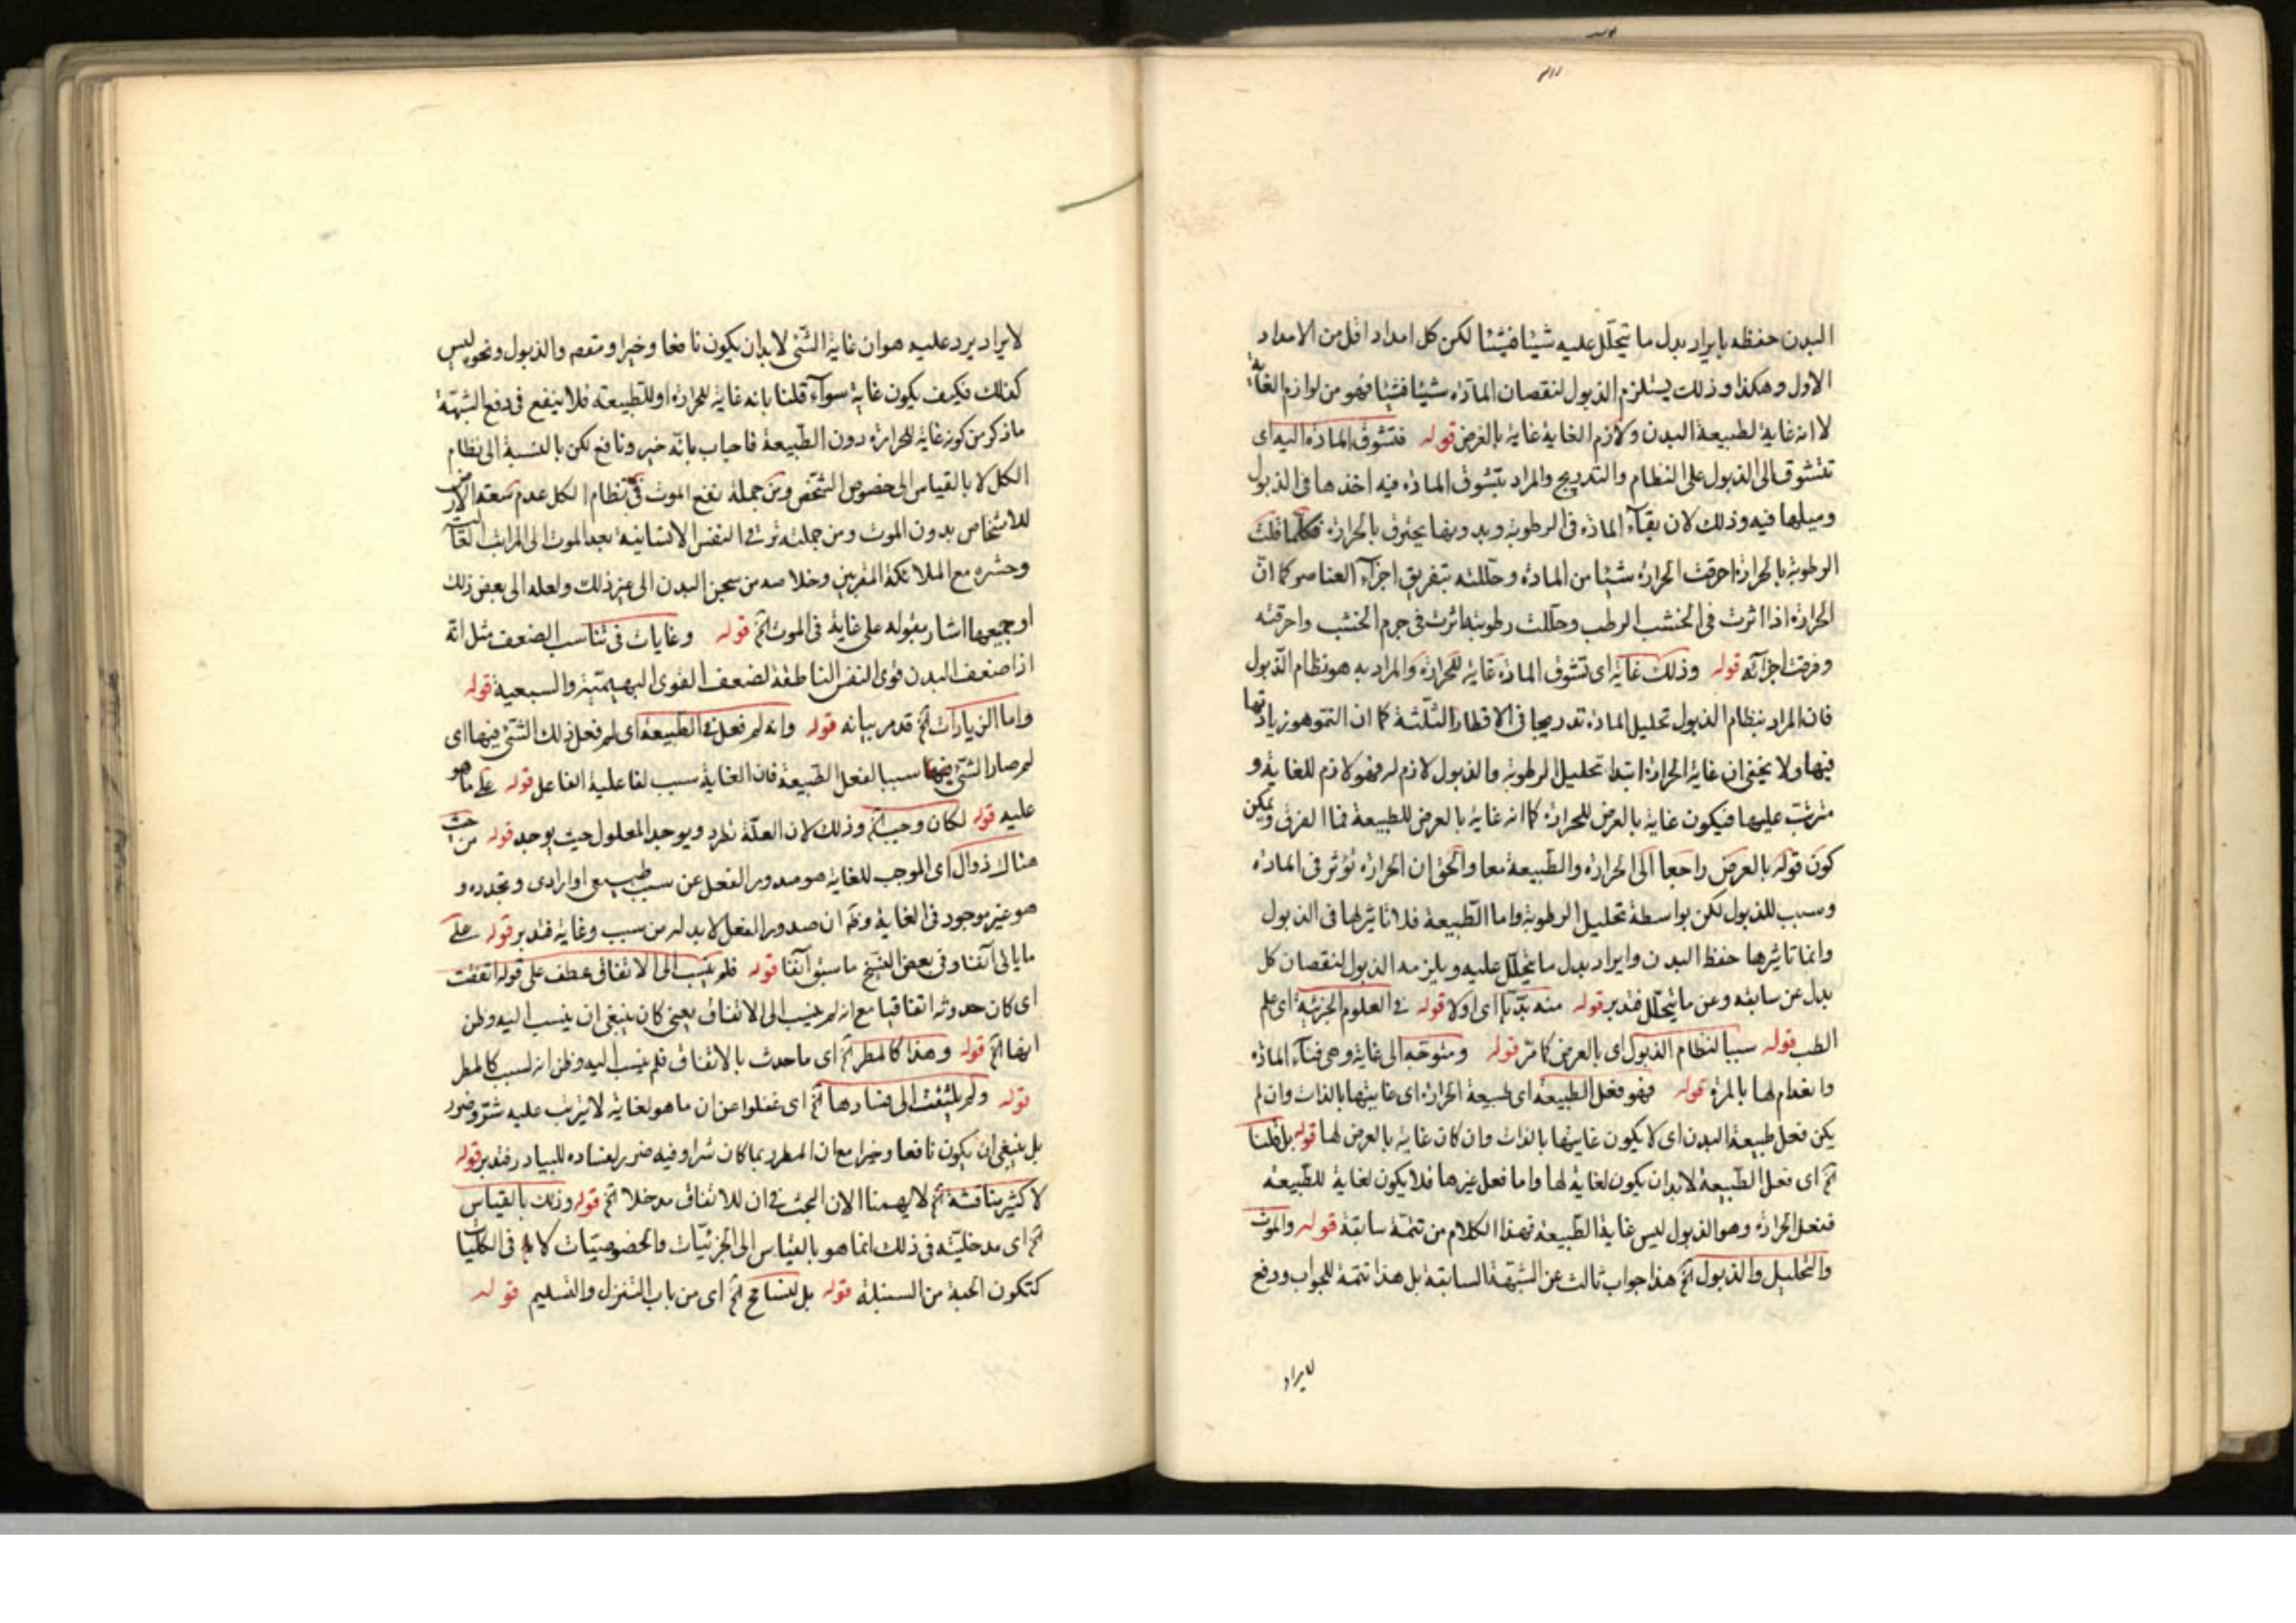 البدن حفظه بايراد بدل ما يتحلّل عليه شيئا فشيئا لكن كل امداد اقل من الامداد
الاول وهكذا وذلك يستلزم الذبول لنقصان المادّة شيئا فشيئا فهو من لوازم الغاية
لا انه غاية لطبيعة البدن ولازم الغاية غاية بالعرض قوله فتشوق المادة اليه اى
تتشوق الى الذبول على النظام والتدريج والمراد بتشوق المادة فيه اخذها فى الذبول
وميلها فيه وذلك لان بقاء المادة فى الرطوبة وبدونها يحترق بالحرارة فكلما قلت
الرطوبة بالحرارة احرقت الحرارة شيئا من المادة وحللته بتفريق اجزاء العناصر كما ان
الحرارة اذا اثرت فى الخشب الرطب وحللت رطوبته اثرت فى جرم الخشب واحرقته
وفرقت اجزائه قوله وذلك غاية اى تشوق المادة غاية للحرارة والمراد به هو نظام الذبول
فان المراد بنظام الذبول تحليل المادة تدريجا فى الاقطار الثلثة كما ان النمو هو زيادتها
فيها ولا يخفى ان غاية الحرارة ابتداء تحليل الرطوبة والذبول لازم له فهو لازم للغاية و
مترتب عليها فيكون غاية بالعرض للحرارة كما انه غاية بالعرض للطبيعة فما الفرق ويمكن
كون قوله بالعرض راجعا الى الحرارة والطبيعة معا والحق ان الحرارة تؤثر فى المادة
وسبب للذبول لكن بواسطة تحليل الرطوبة واما الطبيعة فلا تاثير لها فى الذبول
وانما تاثيرها حفظ البدن وايراد بدل ما يتحلّل عليه ويلزمه الذبول لنقصان كل
بدل عن سابقه وعن ما يتحلل فتدبر قوله منه بدّيا اى اولا قوله فى العلوم الجزئية اى علم
الطب قوله سببا لنظام الذبول اى بالعرض كما مر قوله ومتوجه الى غاية وهى فناء المادة
وانعدام لها بالمرة قوله فهو فعل الطبيعة اى طبيعة الحرارة اى غايتها بالذات وان لم
يكن فعل طبيعة البدن اى لا يكون غايتها بالذات وان كان غاية بالعرض لها قوله بل قلنا
الخ اى فعل الطبيعة لا بد ان يكون لغاية لها واما فعل غيرها فلا يكون لغاية للطبيعة
ففعل الحرارة وهو الذبول ليس غاية الطبيعة فهذا الكلام من تتمة سابقة قوله والموت
والتحليل والذبول الخ هذا جواب ثالث عن الشبهة السابقة بل هذا تتمة للجواب ودفع
لايراد
لايراد يرد عليه هو ان غاية الشئ لا بد ان يكون نافعا وخيرا ومتمم والذبول ونحوه ليس
كذلك فكيف يكون غاية سواء قلنا بانه غاية للحرارة او للطبيعة فلا ينفع فى دفع الشبهة
ما ذكر من كونه غاية للحرارة دون الطبيعة فاجاب بانه خير ونافع لكن بالنسبة الى نظام
الكل لا بالقياس الى خصوص الشخص ومن جملة نفع الموت فى نظام الكل عدم سعة الارض
للاشخاص بدون الموت ومن جملته ترقى النفس الانسانية بعد الموت الى المراتب العاليات
وحشره مع الملائكة المقربين وخلاصه من سجن البدن الى غير ذلك ولعله الى بعض ذلك
او جميعها اشار بقوله على غاية فى الموت الخ قوله وغايات فى تناسب الضعف مثل انه
اذا ضعف البدن قوى النفس الناطقة لضعف القوى البهيمية والسبعية قوله
واما الزيادات الخ قد مر بيانه قوله وانه لم فعل فى الطبيعة اى لم فعل ذلك الشئ فيها اى
لم صار الشئ سببا لفعل الطبيعة فان الغاية سبب لفاعلية الفاعل قوله على ما هو
عليه قوله لكان وجب الخ وذلك لان العلة تطرد ويوجد المعلول حيث يوجد قوله من حيث
هناك زوال اى الموجب للغاية هو صدور الفعل عن سبب طبيعى او ارادى وتجدده و
هو غير موجود فى الغاية وظ ان صدور الفعل لا بد له من سبب وغاية فتدبر قوله على
ما يالى آنفا وفى بعض النسخ ما سبق آنفا قوله فلم ينسب الى الاتفاق عطف على قوله اتفقت
اى كان حدوثه اتفاقيا مع انه لم ينسب الى الاتفاق يعنى كان ينبغى ان ينسب اليه وظن
انها الخ قوله وهذا كالمطر الخ اى ما حدث بالاتفاق فلم ينسب اليه وظن انه لسبب كالمطر
قوله ولم يلتفت الى فسادها الخ اى غفلوا عن ان ما هو لغاية لا يترتب عليه شر وضرر
بل ينبغى ان يكون نافعا وخيرا مع ان المطر ربما كان شرا وفيه ضرر لفساده للبيادر فتدبر قوله
لا كثير مناقشة الخ لا يهمنا الان البحث فى ان للاتفاق مدخلا الخ قوله وذلك بالقياس
الخ اى مدخليته فى ذلك انما هو بالقياس الى الجزئيات والخصوصيات لا فى الكليات
كتكون الحبة من السنبلة قوله بل لنسامح الخ اى من باب التنزل والتسليم قوله